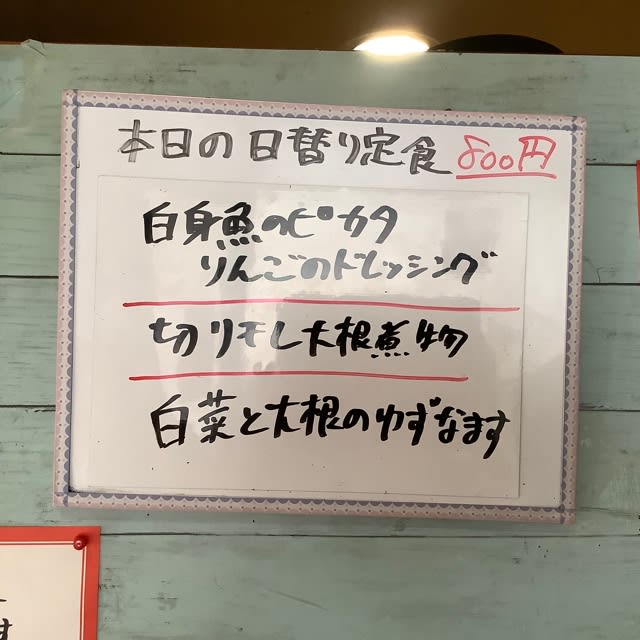 本日の日替り定食 800円
白身魚のピカタ
りんごのドレッシング
切り干し大根煮物
白菜と大根のゆずなます